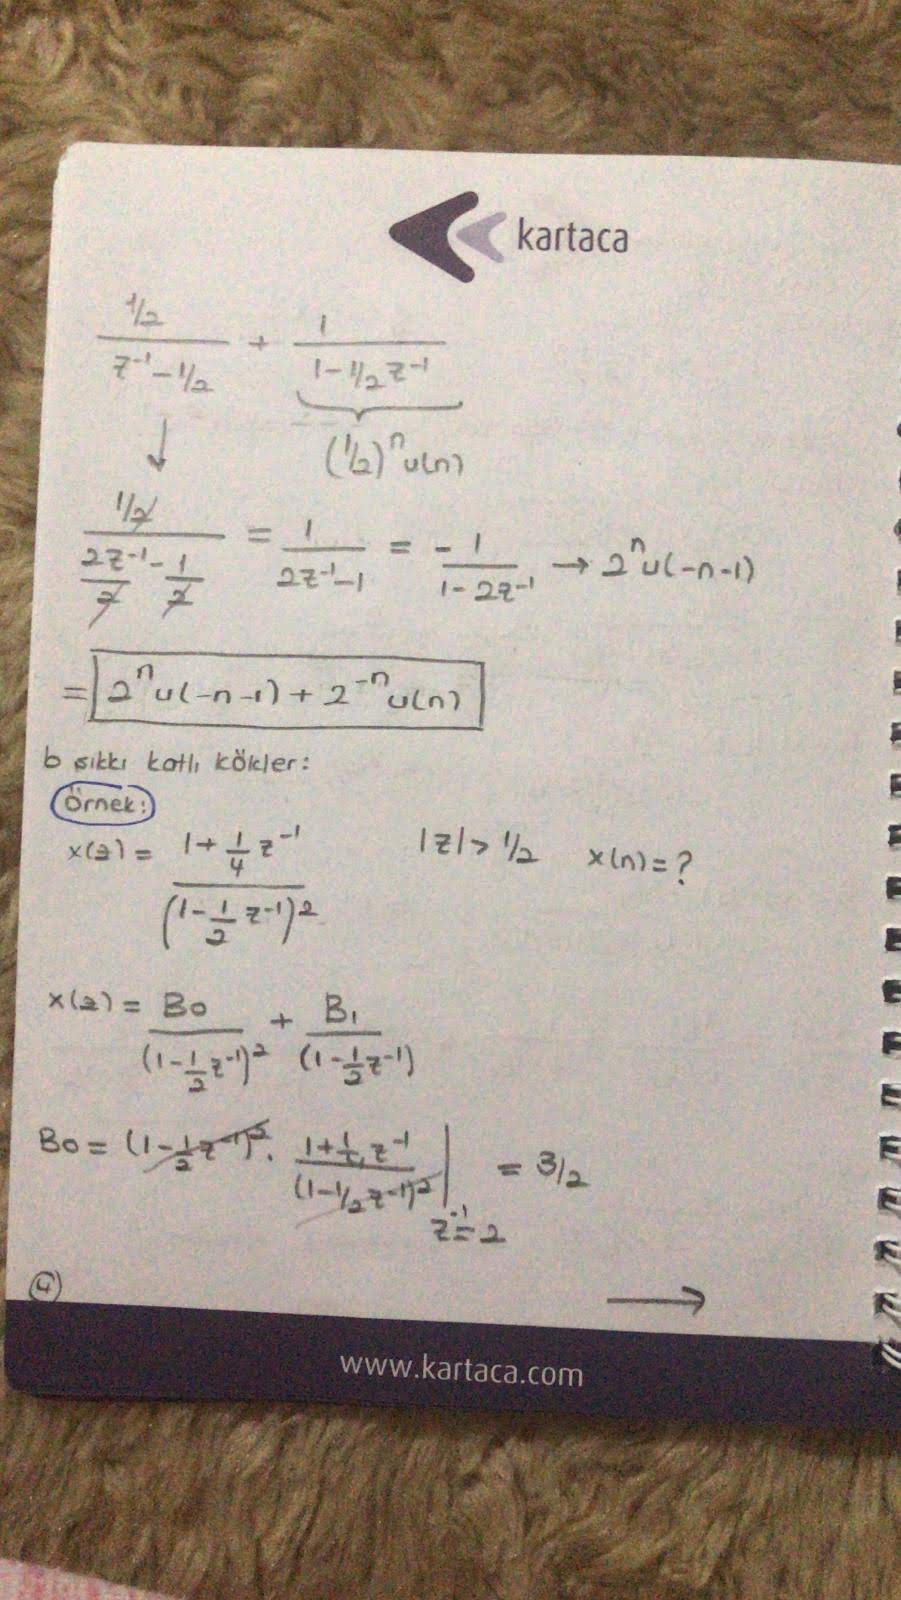 kartaca
1/2 / (z⁻¹ - 1/2) + 1 / (1 - 1/2 z⁻¹)
(1/2)ⁿ u(n)
(1/2) / (2z⁻¹/2 - 1/2) = 1 / (2z⁻¹ - 1) = - 1 / (1 - 2z⁻¹) → 2ⁿ u(-n-1)
= 2ⁿ u(-n-1) + 2⁻ⁿ u(n)
b şıkkı katlı kökler:
Örnek:
x(z) = (1 + 1/4 z⁻¹) / (1 - 1/2 z⁻¹)² |z| > 1/2 x(n) = ?
x(z) = B0 / (1 - 1/2 z⁻¹)² + B1 / (1 - 1/2 z⁻¹)
B0 = (1 - 1/2 z⁻¹)² . (1 + 1/4 z⁻¹) / (1 - 1/2 z⁻¹)² | z⁻¹ = 2 = 3/2
4 →
www.kartaca.com